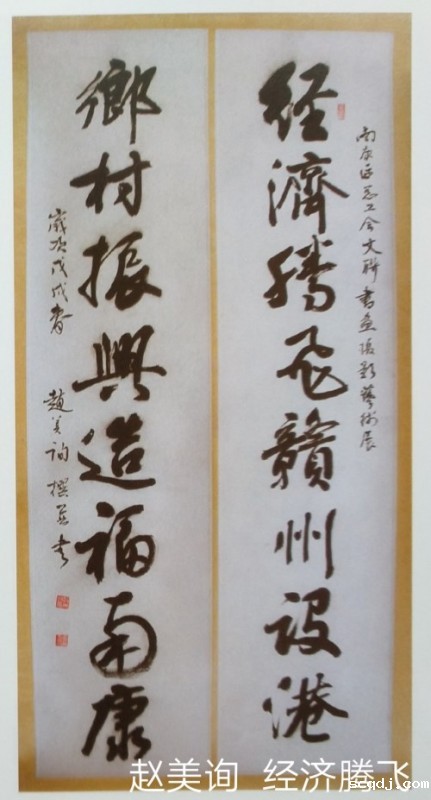 经濟腾飞贛州设港
南康区总工会文聯書画摄影藝術展
鄉村振興造福南康
歲次戊戌春
趙美询撰并书
赵美询 经济腾飞
scgdj.com